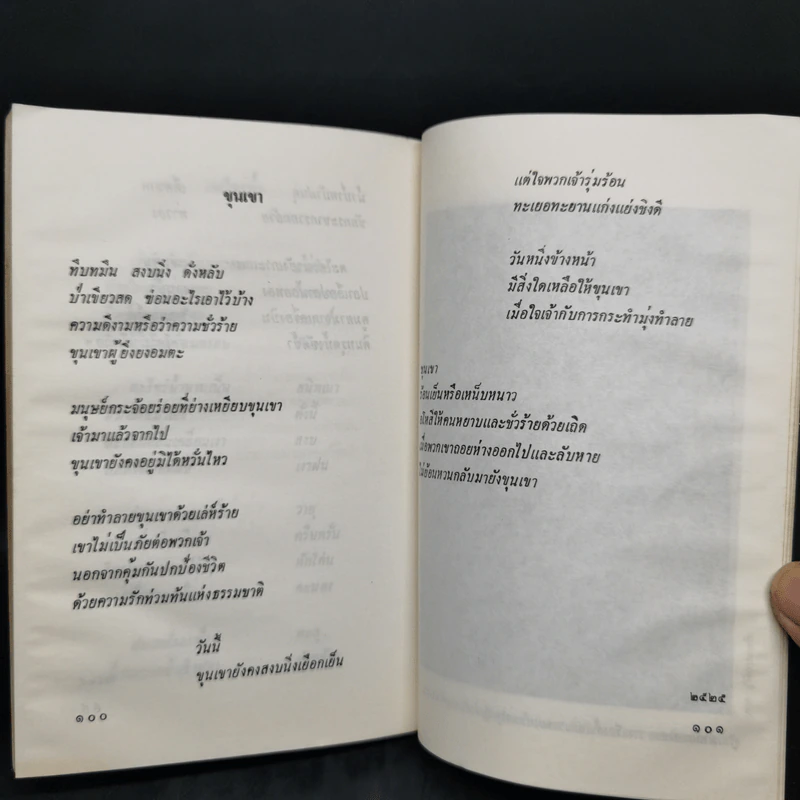 ขุนเขา
ทึบทมึน สงบนิ่ง ดั่งหลับ
ป่าเขียวสด ซ่อนอะไรเอาไว้บ้าง
ความดีงามหรือว่าความชั่วร้าย
ขุนเขาผู้ยิ่งยงอมตะ
มนุษย์กระจ้อยร่อยที่ย่างเหยียบขุนเขา
เจ้ามาแล้วจากไป
ขุนเขายังคงอยู่มิได้หวั่นไหว
อย่าทำลายขุนเขาด้วยเล่ห์ร้าย
เขาไม่เป็นภัยต่อพวกเจ้า
นอกจากคุ้มกันปกป้องชีวิต
ด้วยความรักท่วมท้นแห่งธรรมชาติ
วันนี้
ขุนเขายังคงสงบนิ่งเยือกเย็น
๑๐๐
แต่ใจพวกเจ้ารุ่มร้อน
ทะเยอทะยานแก่งแย่งชิงดี
วันหนึ่งข้างหน้า
มีสิ่งใดเหลือให้ขุนเขา
เมื่อใจเจ้ากับการกระทำมุ่งทำลาย
ขุนเขา
ร้อนเย็นหรือเหน็บหนาว
ให้คนหยาบและชั่วร้ายด้วยเถิด
เมื่อพวกเขาถอยห่างออกไปและลับหาย
ไม่ย้อนหวนกลับมายังขุนเขา
๒๕๒๕
๑๐๑